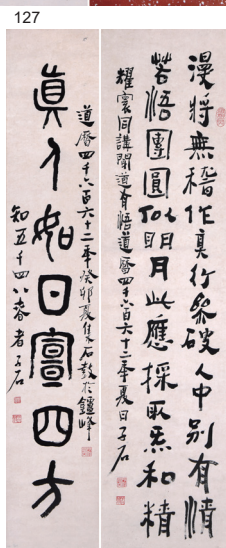 127
漫將無稽作真行參破人中別有情
若悟團圓孤明月此應採取炁和精
耀寰同講聞道有悟道曆四千六百六十二季夏日子石
道曆四千六百六十二季癸卯夏集石鼓於鑪峰
真人如日寰四方
知五千四八春者子石